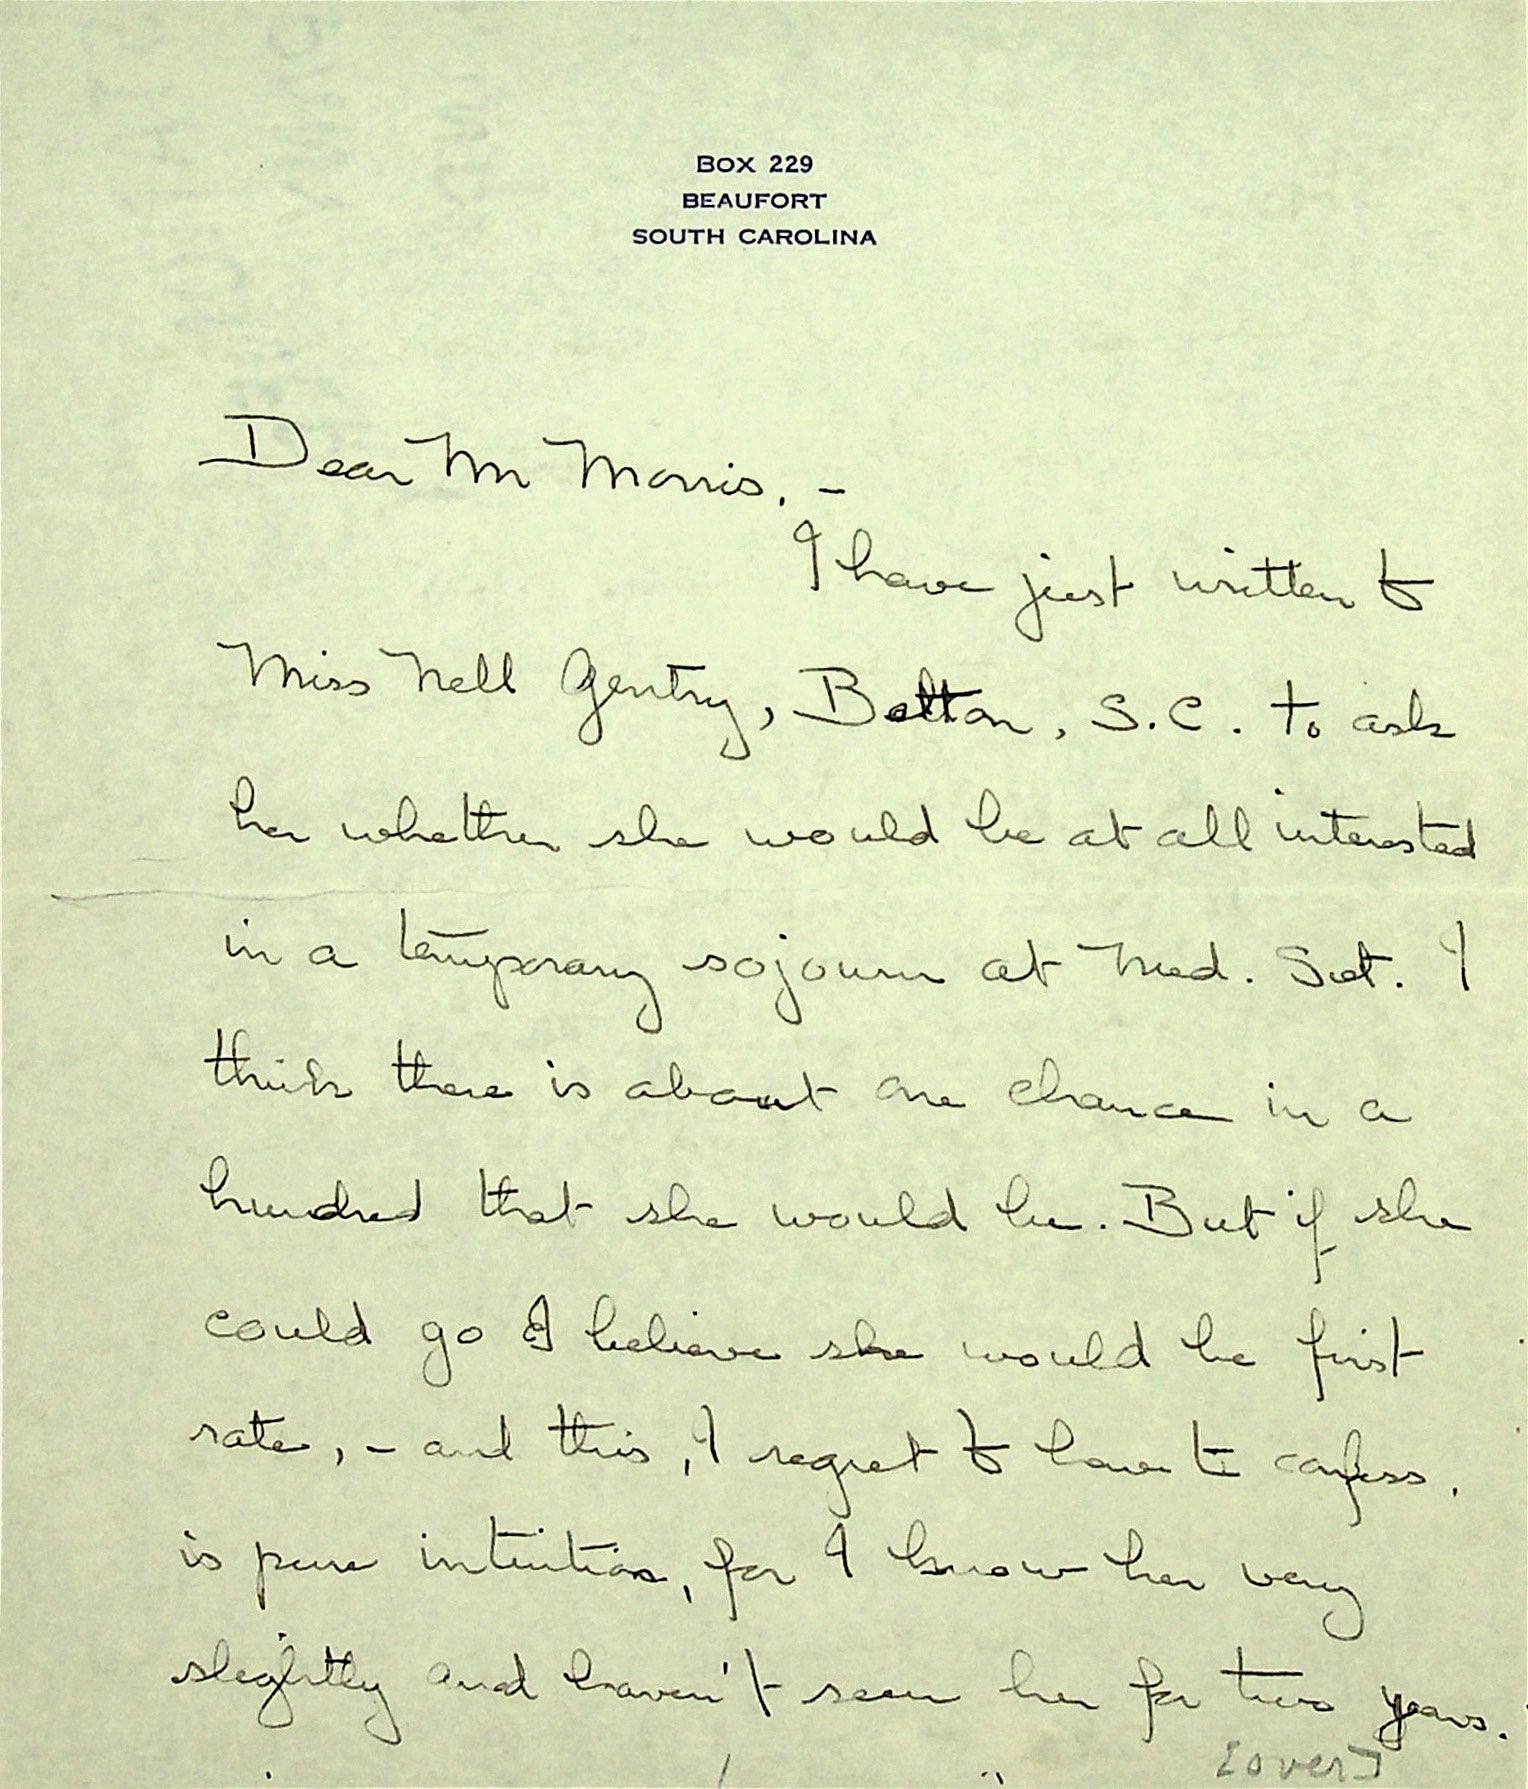 BOX 229
BEAUFORT
SOUTH CAROLINA
Dear Mr Morris, -
I have just written to
Miss Nell Gentry, Belton, S.C. to ask
her whether she would be at all interested
in a temporary sojourn at Med. Sct. I
think there is about one chance in a
hundred that she would be. But if she
could go I believe she would be first
rate, - and this, I regret to have to confess,
is pure intuition, for I know her very
slightly and haven't seen her for two years.
[over]